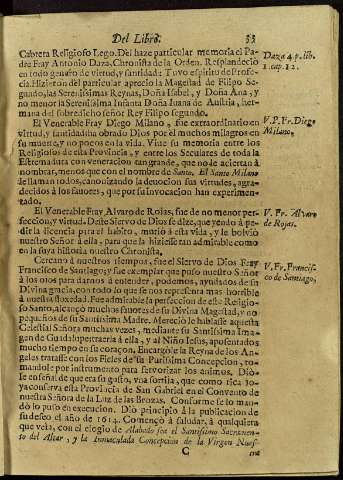 Del Libro.
53
Cabrera Religioso Lego. Del haze particular memoria el Pa-
dre Fray Antonio Daza, Chronista de la Orden. Resplandeciò
en todo genero de virtud, y santidad: Tuvo espiritu de Profe-
cia. Hizieron del particular aprecio la Magestad de Filipo Se-
gundo, las Serenissimas Reynas, Doña Isabel, y Doña Ana; y
no menor la Serenissima Infanta Doña Juana de Austria, her-
mana del sobredicho señor Rey Filipo segundo.
Daza 4 p. lib.
1. cap. 12.
El Venerable Fray Diego Milano, fue extraordinario en
virtud, y santidad: ha obrado Dios por el muchos milagros en
su muerte, y no pocos en la vida. Vive su memoria entre los
Religiosos de esta Provincia, y entre los Seculares de toda la
Estremadura con veneracion tan grande, que no le aciertan à
nombrar, menos que con el nombre de Santo. El Santo Milano
le llaman todos, canonizando la devocion sus virtudes, agra-
decidos à los favores, que por su invocacion han experimen-
tado.
V. P. Fr. Diego
Milano.
El Venerable Fray Alvaro de Rojas, fue de no menor per-
feccion, y virtud. Deste Siervo de Dios se dize, que yendo à pe-
dir la licencia para el habito, muriò à esta vida, y le bolviò
nuestro Señor à ella, para que la hiziesse tan admirable como
en la suya historia nuestro Chronista.
V. Fr. Alvaro
de Rojas.
Cercano à nuestros tiempos, fue el Siervo de Dios Fray
Francisco de Santiago; y fue exemplar que puso nuestro Señor
à los ojos para darnos à entender, podemos, ayudados de su
Divina gracia, con todo lo que se nos representa mas horrible
à nuestra floxedad. Fue admirable la perfeccion de este Religio-
so Santo, alcançò muchos favores de su Divina Magestad, y no
pequeños de su Santissima Madre. Mereciò le hablasse aquesta
Celestial Señora muchas vezes, mediante su Santissima Ima-
gen de Guadalupe traria à ella, y al Niño Iesus, aposentados
mucho tiempo en su coraçon. Encargòle la Reyna de los An-
geles tratasse con los Fieles de su Purissima Concepcion, to-
mandole por instrumento para fervorizar los animos. Diò-
le enseñal de que era su gusto, vna sortija, que como rica jo-
ya conserva esta Provincia de San Gabriel en el Convento de
nuestra Señora de la Luz de las Brozas. Conforme se lo man-
dò lo puso en execucion. Diò principio à la publicacion de
su desseo el año de 1614. Començò à saludar, à qualquiera
que veìa, con el elogio de Alabado sea el Santissimo Sacramen-
to del Altar, y la Inmaculada Concepcion de la Virgen Nues-
V. Fr. Francis-
co de Santiago,
C
tra